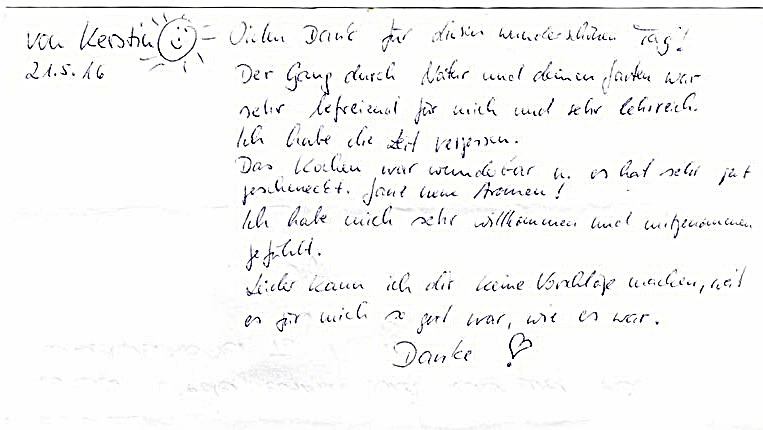 von Kerstin
21.5.16
Vielen Dank für diesen wunderschönen Tag!
Der Gang durch Natur und deinen Garten war
sehr befreiend für mich und sehr lehrreich.
Ich habe die Zeit vergessen.
Das Kochen war wunderbar u. es hat sehr gut
geschmeckt. Ganz neue Aromen!
Ich habe mich sehr willkommen und mitgenommen
gefühlt.
Leider kann ich dir keine Vorschläge machen, weil
es für mich so gut war, wie es war.
Danke